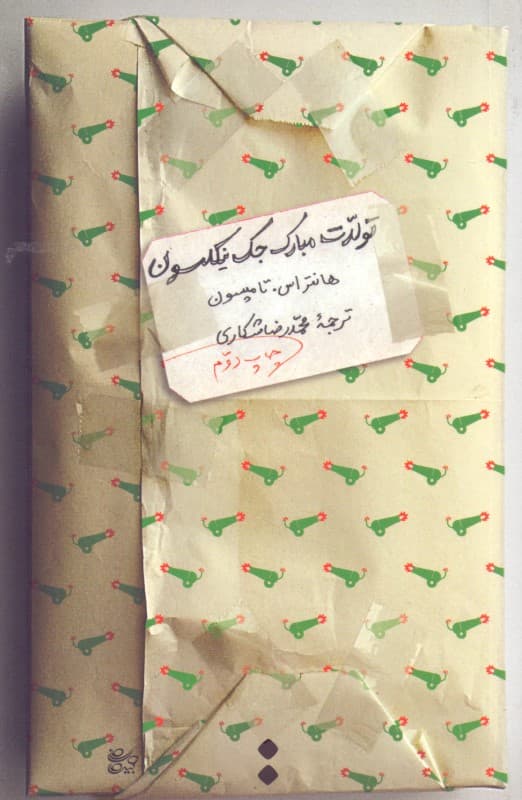 تولدّت مبارک جک نیکلسون
هانتر اس. تامپسون
ترجمهٔ محمّدرضا شکاری
چاپ دوّم